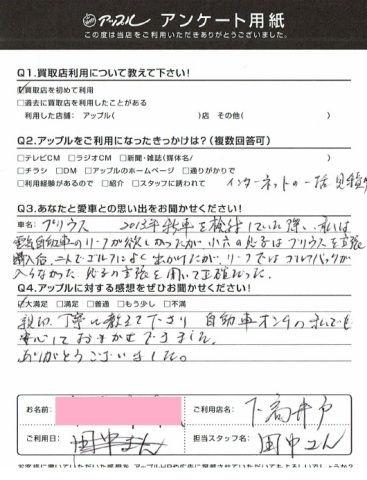 アップル アンケート用紙
この度は当店をご利用いただきありがとうございました。
Q1.買取店利用について教えて下さい!
☑買取店を初めて利用
□過去に買取店を利用したことがある
利用した店舗: アップル( )店 その他( )
Q2.アップルをご利用になったきっかけは?(複数回答可)
□テレビCM □ラジオCM □新聞・雑誌(媒体名/ )
□チラシ □DM □アップルのホームページ □通りがかりで
□利用経験があるので □紹介 □スタッフに誘われて インターネットの一括見積り
Q3.あなたと愛車との思い出をお聞かせください!
車名: プリウス 2013年新車を検討していた際、私は
電気自動車のリーフが欲しかったが小六の息子はプリウスを主張
購入后、二人でゴルフによく出かけたが、リーフではゴルフバックが
入らなかった 息子の主張を聞いて正確だった。
Q4.アップルに対する感想をぜひお聞かせください!
☑大満足 □満足 □普通 □もう少し □不満
親切、丁寧に教えて下さり 自動車オンチの私でも
安心しておまかせできました。
ありがとうございました。
お名前:
ご利用店名: 下高井戸
ご利用日: 田中さん
担当スタッフ名: 田中さん